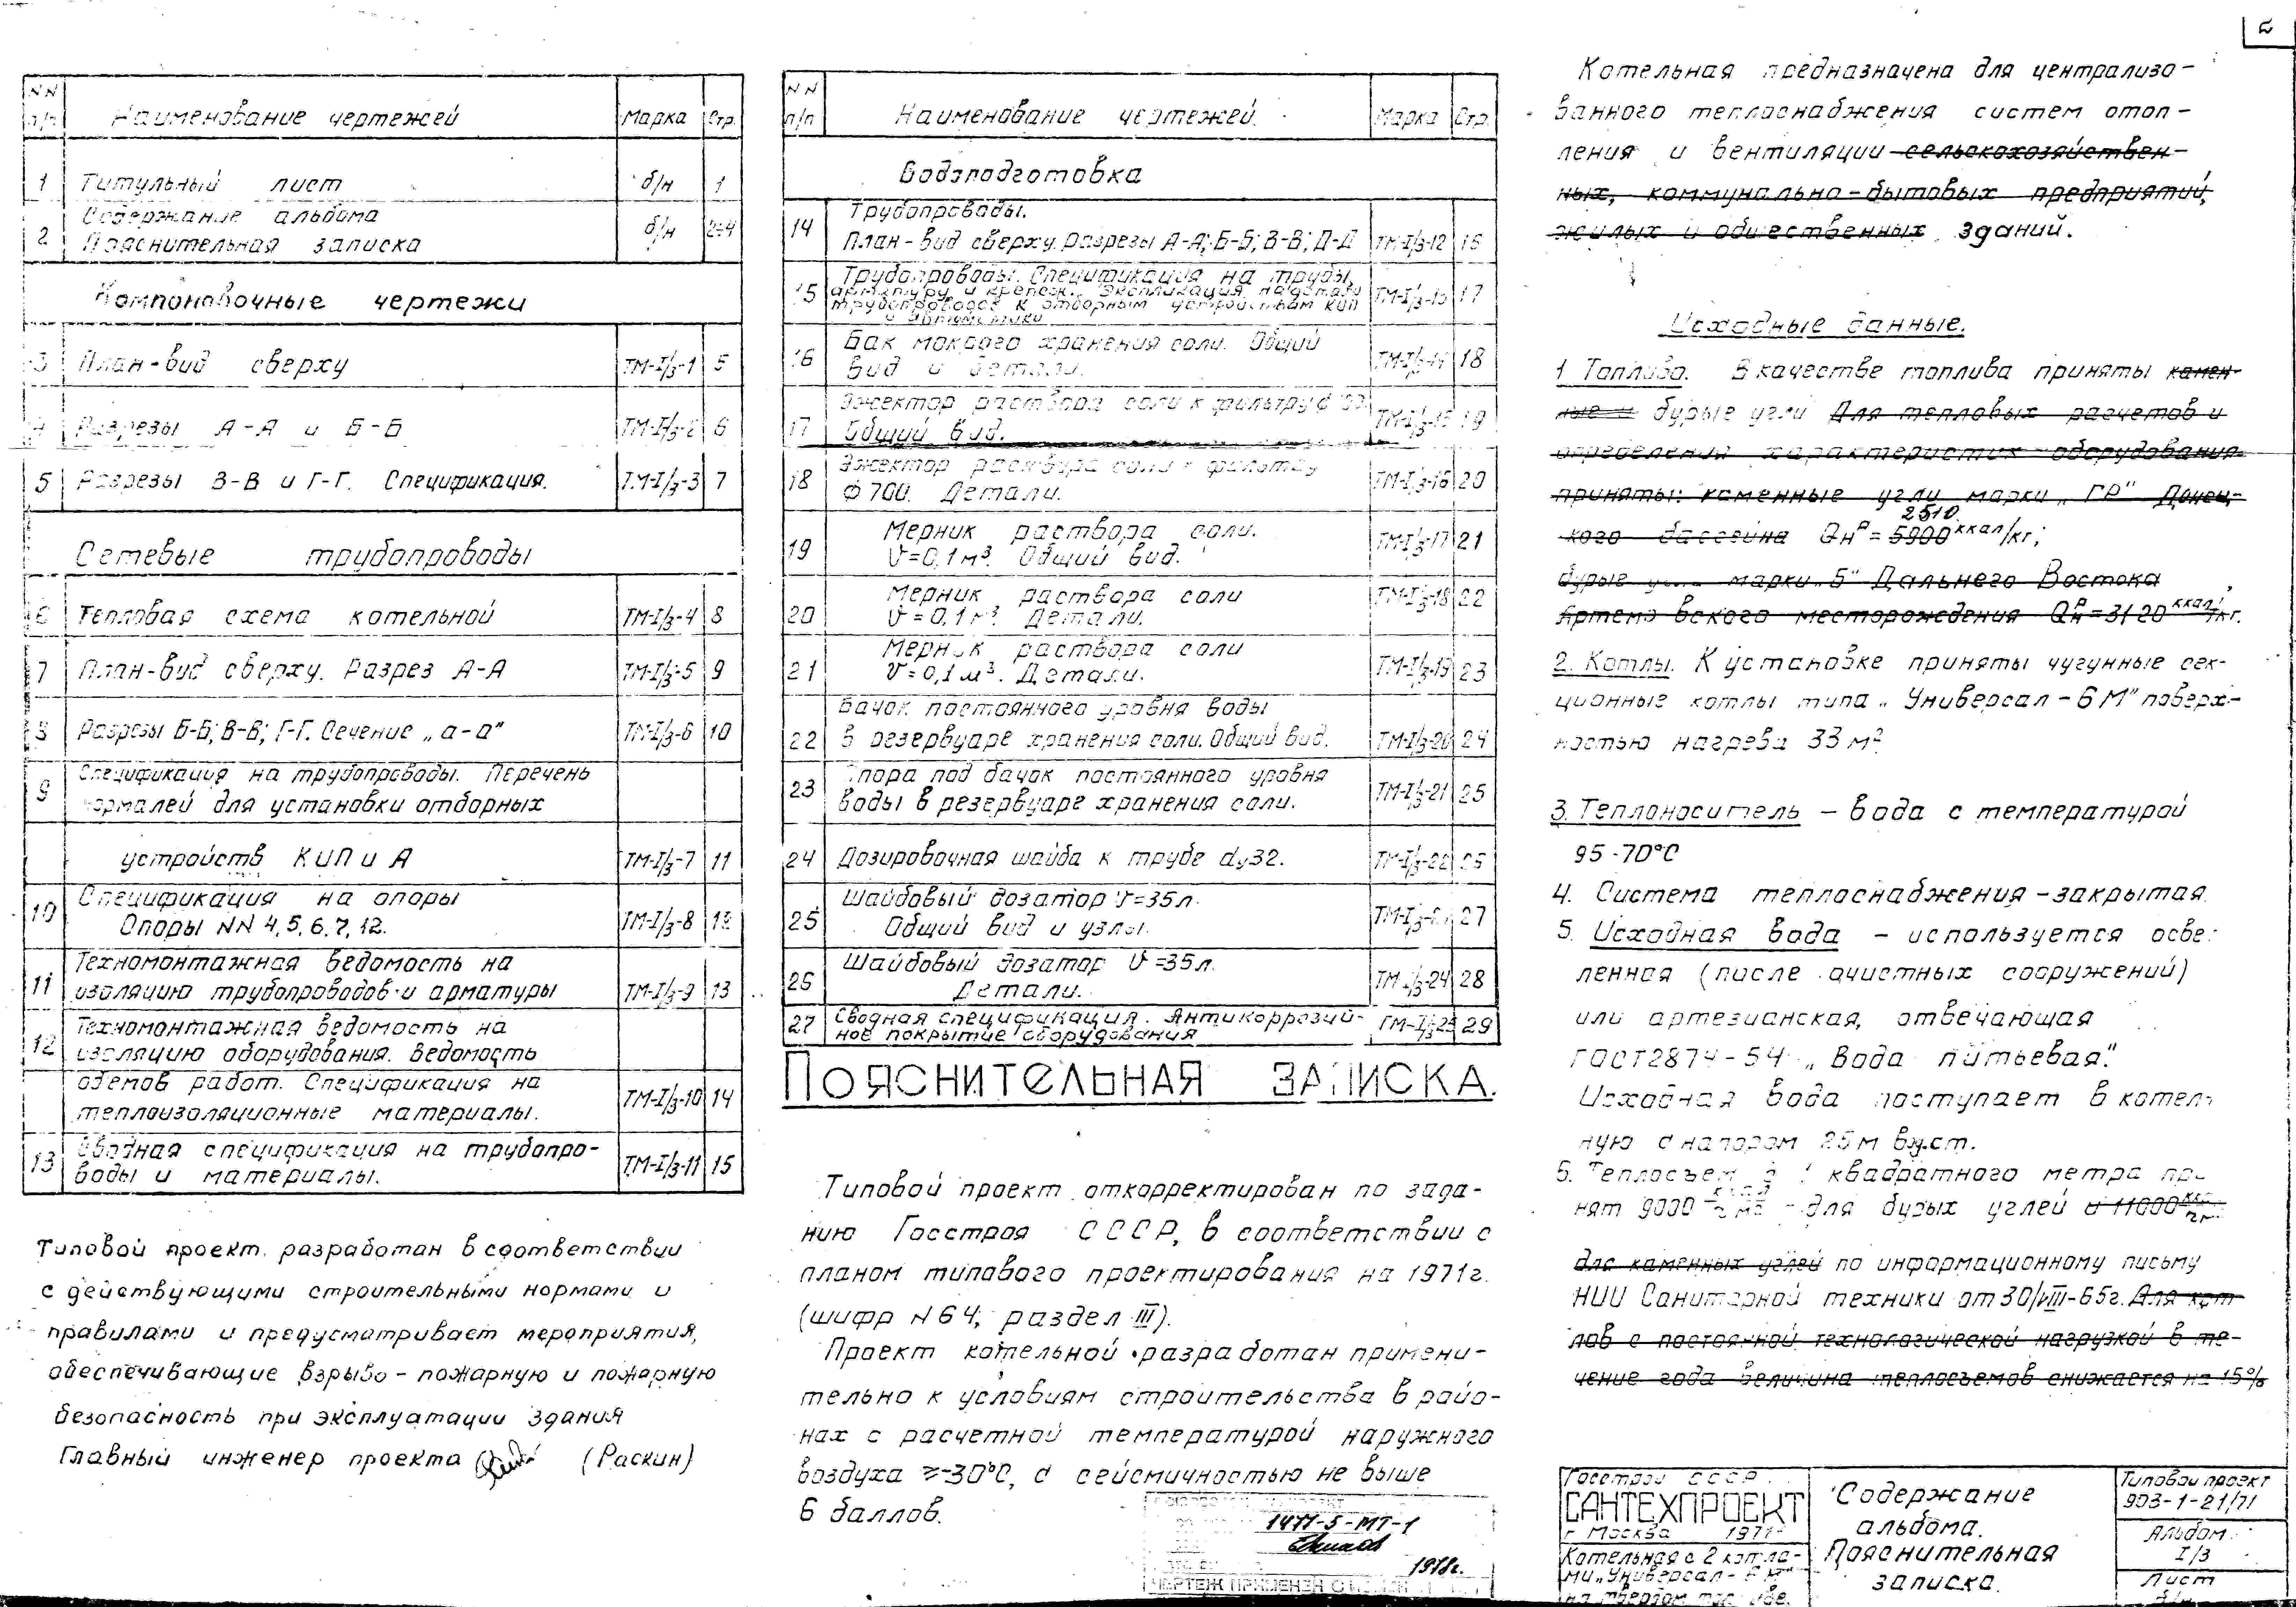 NN п/п Наименование чертежей Марка Стр.
1 Титульный лист б/н 1
2 Содержание альбома
Пояснительная записка б/н 2÷4
Компоновочные чертежи
3 План-вид сверху ТМ-I/3-1 5
4 Разрезы А-А и Б-Б ТМ-I/3-2 6
5 Разрезы В-В и Г-Г. Спецификация. ТМ-I/3-3 7
Сетевые трубопроводы
6 Тепловая схема котельной ТМ-I/3-4 8
7 План-вид сверху. Разрез А-А ТМ-I/3-5 9
8 Разрезы Б-Б; В-В; Г-Г. Сечение „а-а" ТМ-I/3-6 10
9 Спецификация на трубопроводы. Перечень
нормалей для установки отборных
устройств КИП и А ТМ-I/3-7 11
10 Спецификация на опоры
Опоры NN 4, 5, 6, 7, 12. ТМ-I/3-8 12
11 Техномонтажная ведомость на
изоляцию трубопроводов и арматуры ТМ-I/3-9 13
12 Техномонтажная ведомость на
изоляцию оборудования. Ведомость
обемов работ. Спецификация на
теплоизоляционные материалы. ТМ-I/3-10 14
13 Сводная спецификация на трубопро-
воды и материалы. ТМ-I/3-11 15
Типовой проект разработан в соответствии
с действующими строительными нормами и
правилами и предусматривает мероприятия,
обеспечивающие взрыво-пожарную и пожарную
безопасность при эксплуатации здания
Главный инженер проекта (Раскин)
NN п/п Наименование чертежей. Марка Стр.
Водоподготовка
14 Трубопроводы.
План-вид сверху. Разрезы А-А; Б-Б; В-В; Д-Д ТМ-I/3-12 16
15 Трубопроводы. Спецификация на трубы,
арматуру и крепеж. Экспликация на детали
трубопроводов к отборным устройствам КИП
и автоматики ТМ-I/3-13 17
16 Бак мокрого хранения соли. Общий
вид и детали. ТМ-I/3-14 18
17 Эжектор раствора соли к фильтру ф 700
Общий вид. ТМ-I/3-15 19
18 Эжектор раствора соли к фильтру
ф 700. Детали. ТМ-I/3-16 20
19 Мерник раствора соли.
V=0,1м³. Общий вид. ТМ-I/3-17 21
20 Мерник раствора соли
V=0,1м³. Детали. ТМ-I/3-18 22
21 Мерник раствора соли
V=0,1м³. Детали. ТМ-I/3-19 23
22 Бачок постоянного уровня воды
в резервуаре хранения соли. Общий вид. ТМ-I/3-20 24
23 Опора под бачок постоянного уровня
воды в резервуаре хранения соли. ТМ-I/3-21 25
24 Дозировочная шайба к трубе dу32. ТМ-I/3-22 26
25 Шайбовый дозатор V=35л.
Общий вид и узлы. ТМ-I/3-23 27
26 Шайбовый дозатор V=35л.
Детали. ТМ-I/3-24 28
27 Сводная спецификация. Антикоррозий-
ное покрытие оборудования ТМ-I/3-25 29
Пояснительная записка.
Типовой проект откорректирован по зада-
нию Госстроя СССР, в соответствии с
планом типового проектирования на 1971г.
(шифр N 64, раздел III).
Проект котельной разработан примени-
тельно к условиям строительства в райо-
нах с расчетной температурой наружного
воздуха ≥-30°С, с сейсмичностью не выше
6 баллов.
1477-5-МТ-1
1978г.
ЧЕРТЕЖ ПРИМЕНЕН
Котельная предназначена для централизо-
ванного теплоснабжения систем отоп-
ления и вентиляции сельскохозяйствен-
ных, коммунально-бытовых предприятий,
жилых и общественных зданий.
Исходные данные.
1 Топливо. В качестве топлива приняты камен-
ные и бурые угли Для тепловых расчетов и
определения характеристик оборудования
приняты: каменные угли марки „ГР" Донец-
2510
кого бассейна Qнр = 5900 ккал/кг;
бурые угли марки „Б" Дальнего Востока
Артемовского месторождения Qнр=3120 ккал/кг.
2. Котлы. К установке приняты чугунные сек-
ционные котлы типа „Универсал-6М" поверх-
ностью нагрева 33 м².
3. Теплоноситель – вода с температурой
95-70°С
4. Система теплоснабжения – закрытая.
5. Исходная вода – используется осве-
ленная (после очистных сооружений)
или артезианская, отвечающая
ГОСТ 2874-54 „Вода питьевая".
Исходная вода поступает в котель-
ную с напором 25м в.ст.
6. Теплосъем с 1 квадратного метра при-
нят 9000 – для бурых углей и 11000
для каменных углей по информационному письму
НИИ Санитарной техники от 30/VIII-65г. Для кот-
лов с постоянной технологической нагрузкой в те-
чение года величина теплосъемов снижается на 15%
Госстрой СССР
САНТЕХПРОЕКТ
г Москва 1971г
Котельная с 2 котла-
ми „Универсал-6М"
на твердом топливе.
Содержание
альбома.
Пояснительная
записка.
Типовой проект
903-1-21/71
Альбом
I/3
Лист
б/н